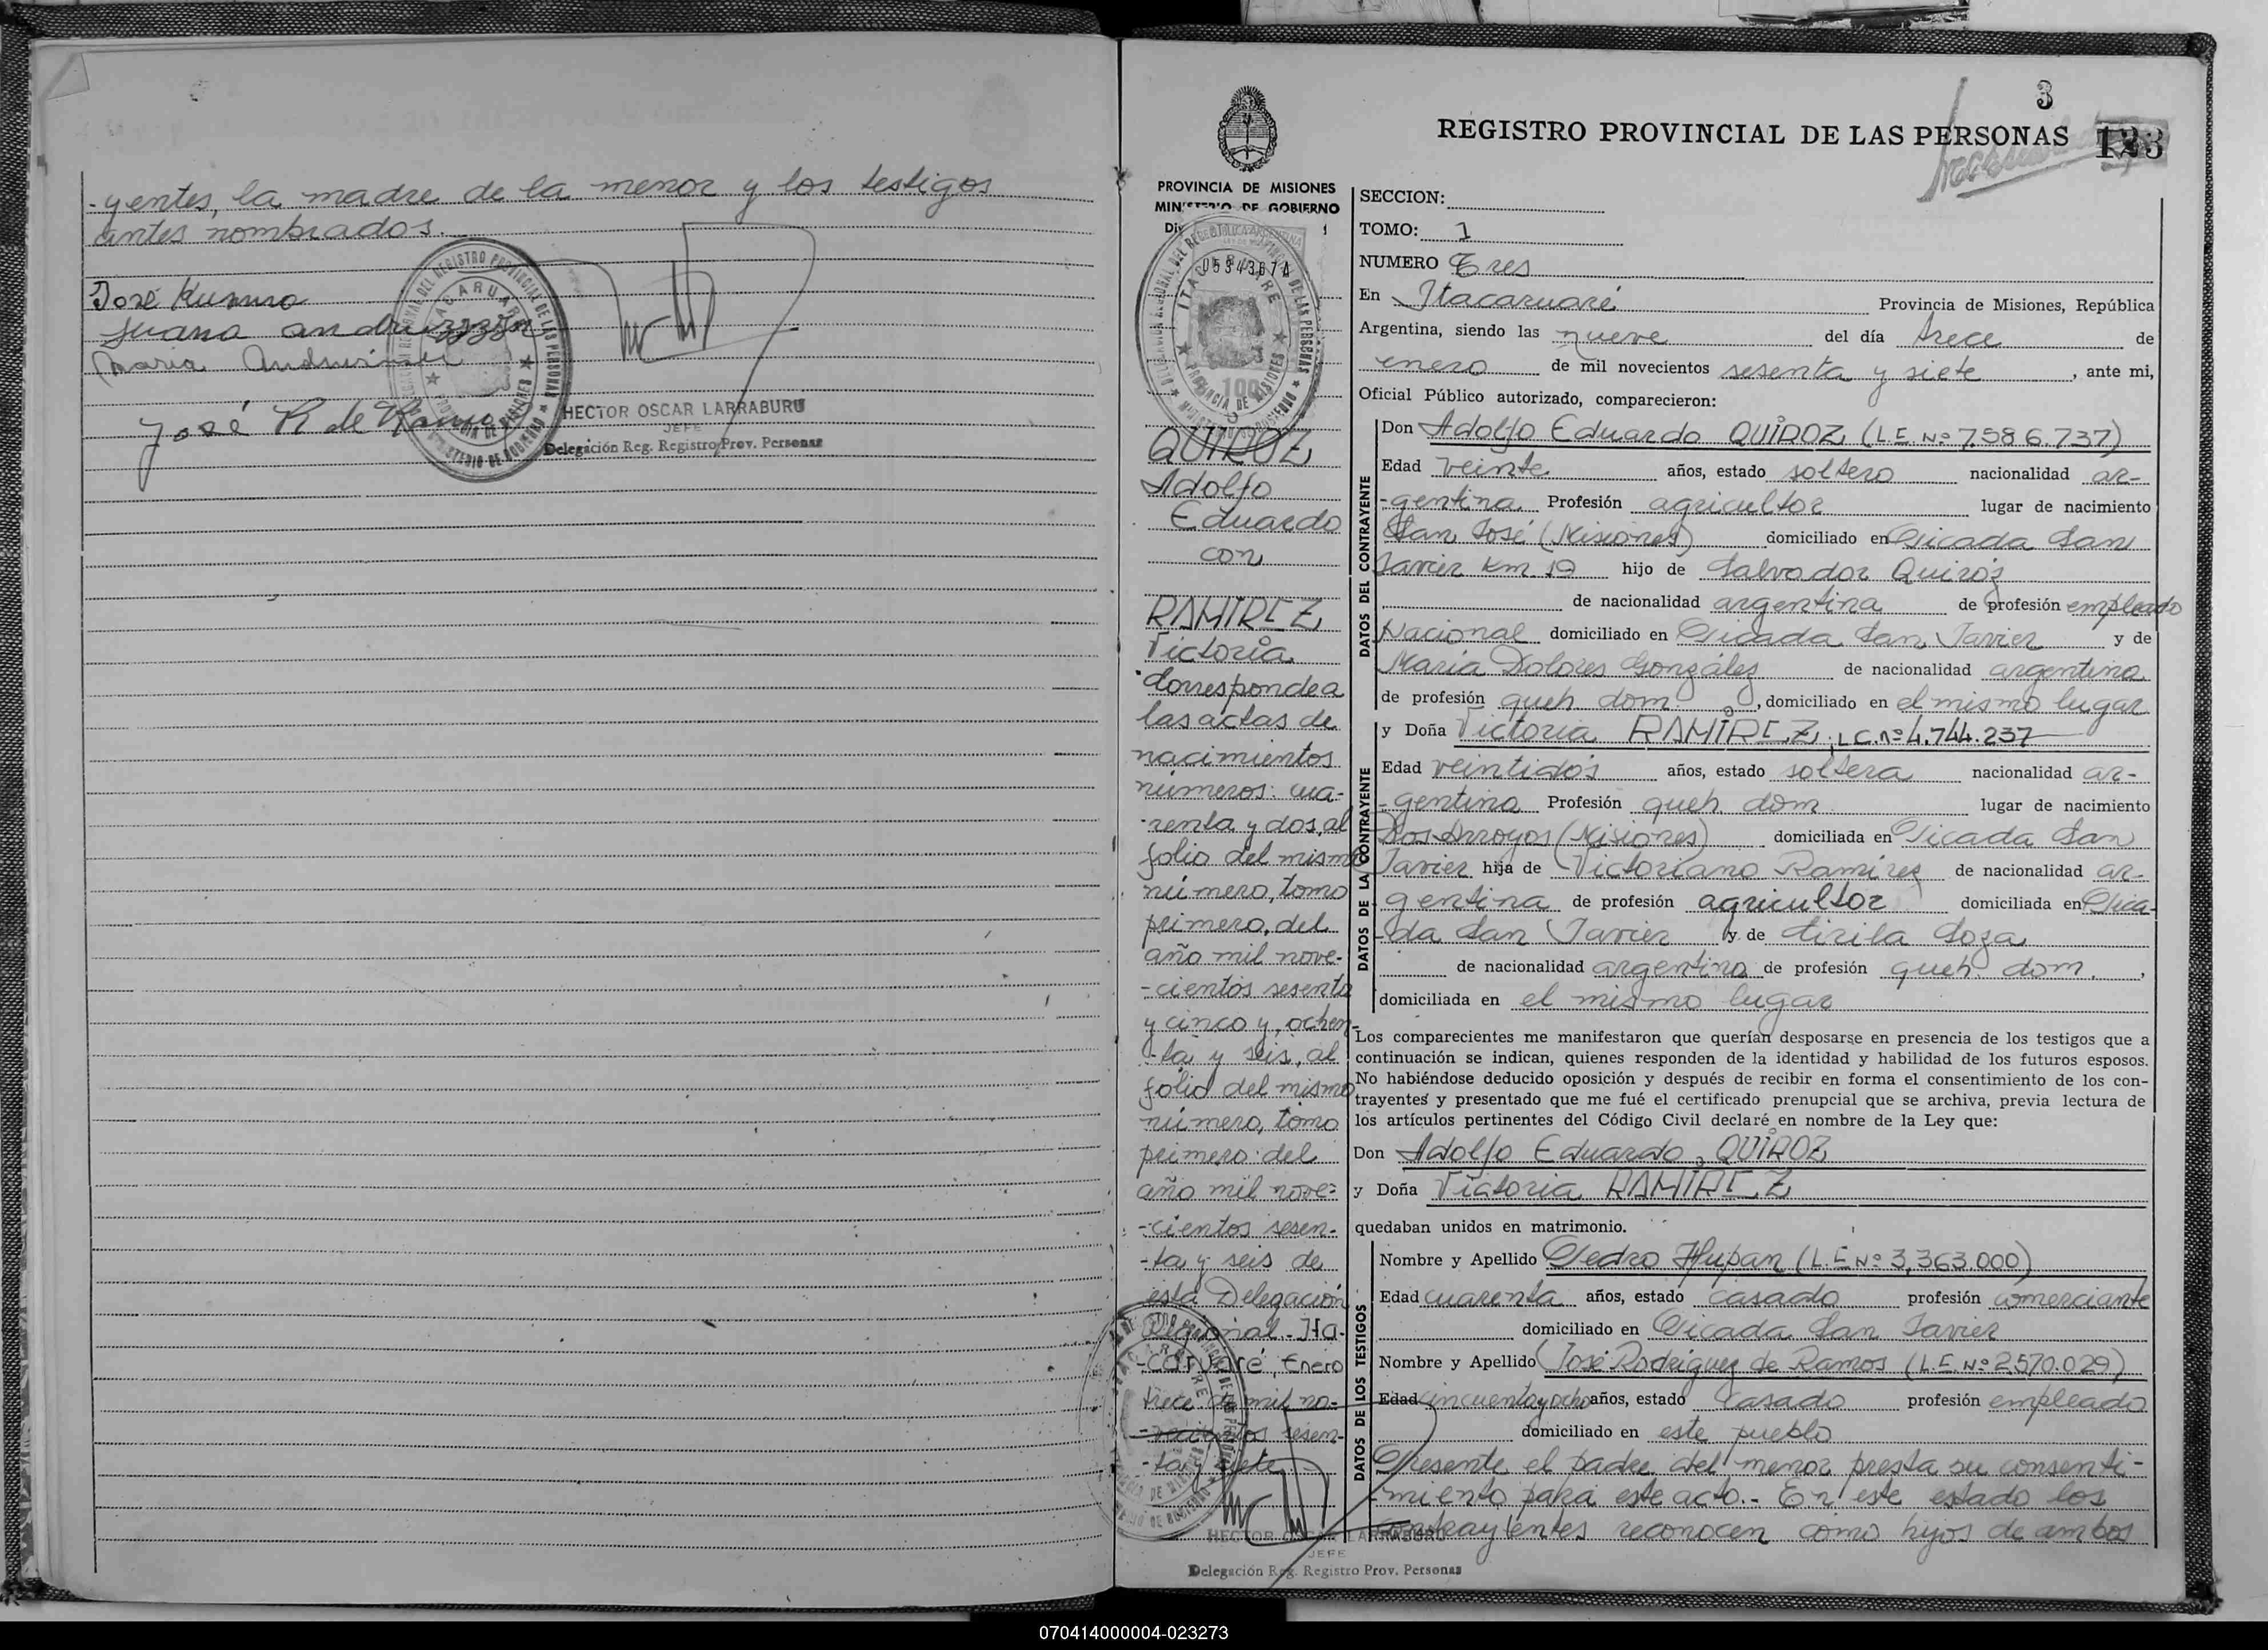 -yentes, la madre de la menor y los testigos
antes nombrados.
José Kusuma
Juana
Maria
José R de Ramos
REGISTRO PROVINCIAL DE LAS PERSONAS
ITACARUARE
PROVINCIA DE MISIONES
MINISTERIO DE GOBIERNO
HECTOR OSCAR LARRABURU
JEFE
Delegación Reg. Registro Prov. Personas
3
REGISTRO PROVINCIAL DE LAS PERSONAS
123
PROVINCIA DE MISIONES
MINISTERIO DE GOBIERNO
QUIROZ
Adolfo
Eduardo
con
RAMIREZ
Victoria
Corresponde a
las actas de
nacimientos
números: cua-
-renta y dos, al
folio del mismo
número, tomo
primero, del
año mil nove-
-cientos sesenta
y cinco y, ochen-
-ta y seis, al
folio del mismo
número, tomo
primero del
año mil nove-
-cientos sesen-
-ta y seis de
esta Delegación
Regional - Ita-
-caruaré, Enero
trece de mil no-
-vecientos sesen-
-ta y siete
HECTOR OSCAR LARRABURU
JEFE
Delegación Reg. Registro Prov. Personas
SECCION:
TOMO: 1
NUMERO Tres
En Itacaruaré Provincia de Misiones, República
Argentina, siendo las nueve del día trece de
enero de mil novecientos sesenta y siete, ante mi,
Oficial Público autorizado, comparecieron:
DATOS DEL CONTRAYENTE
Don Adolfo Eduardo QUIROZ (L.E. Nº 7.586.737)
Edad veinte años, estado soltero nacionalidad ar-
-gentina Profesión agricultor lugar de nacimiento
San José (Misiones) domiciliado en Picada San
Javier Km. 19 hijo de Salvador Quiróz
de nacionalidad argentina de profesión empleado
Nacional domiciliado en Picada San Javier y de
María Dolores González de nacionalidad argentina
de profesión queh dom., domiciliado en el mismo lugar
DATOS DE LA CONTRAYENTE
y Doña Victoria RAMIREZ, L.C. nº 4.744.237
Edad veintidós años, estado soltera nacionalidad ar-
-gentina Profesión queh. dom. lugar de nacimiento
Dos Arroyos (Misiones) domiciliada en Picada San
Javier hija de Victoriano Ramírez de nacionalidad ar-
gentina de profesión agricultor domiciliada en Pica-
-da San Javier y de Cirila Soza
de nacionalidad argentina de profesión queh. dom.,
domiciliada en el mismo lugar
Los comparecientes me manifestaron que querían desposarse en presencia de los testigos que a
continuación se indican, quienes responden de la identidad y habilidad de los futuros esposos.
No habiéndose deducido oposición y después de recibir en forma el consentimiento de los con-
trayentes y presentado que me fué el certificado prenupcial que se archiva, previa lectura de
los artículos pertinentes del Código Civil declaré en nombre de la Ley que:
Don Adolfo Eduardo QUIROZ
y Doña Victoria RAMIREZ
quedaban unidos en matrimonio.
DATOS DE LOS TESTIGOS
Nombre y Apellido Pedro Hupan (L.E Nº 3,363.000)
Edad cuarenta años, estado casado profesión comerciante
domiciliado en Picada San Javier
Nombre y Apellido José Rodríguez de Ramos (L.E. Nº 2.570.029)
Edad cincuenta y ocho años, estado casado profesión empleado
domiciliado en este pueblo
Presente el padre del menor presta su consenti-
-miento para este acto.- En este estado los
contrayentes reconocen como hijos de ambos
070414000004-023273